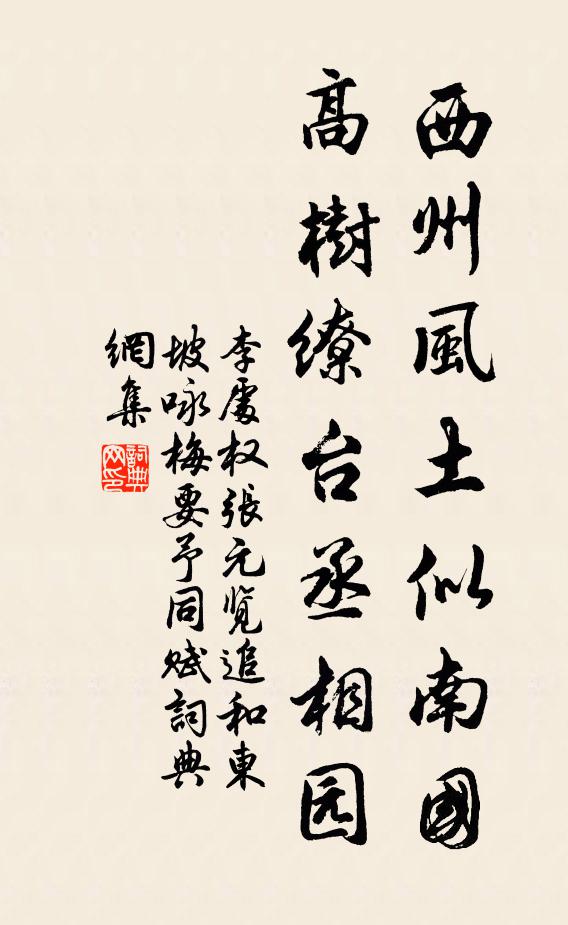 西州風土似南國
高樹繚台丞相园
李處权張元览追和東
坡咏梅要予同赋詞典
網集
詞典
网印